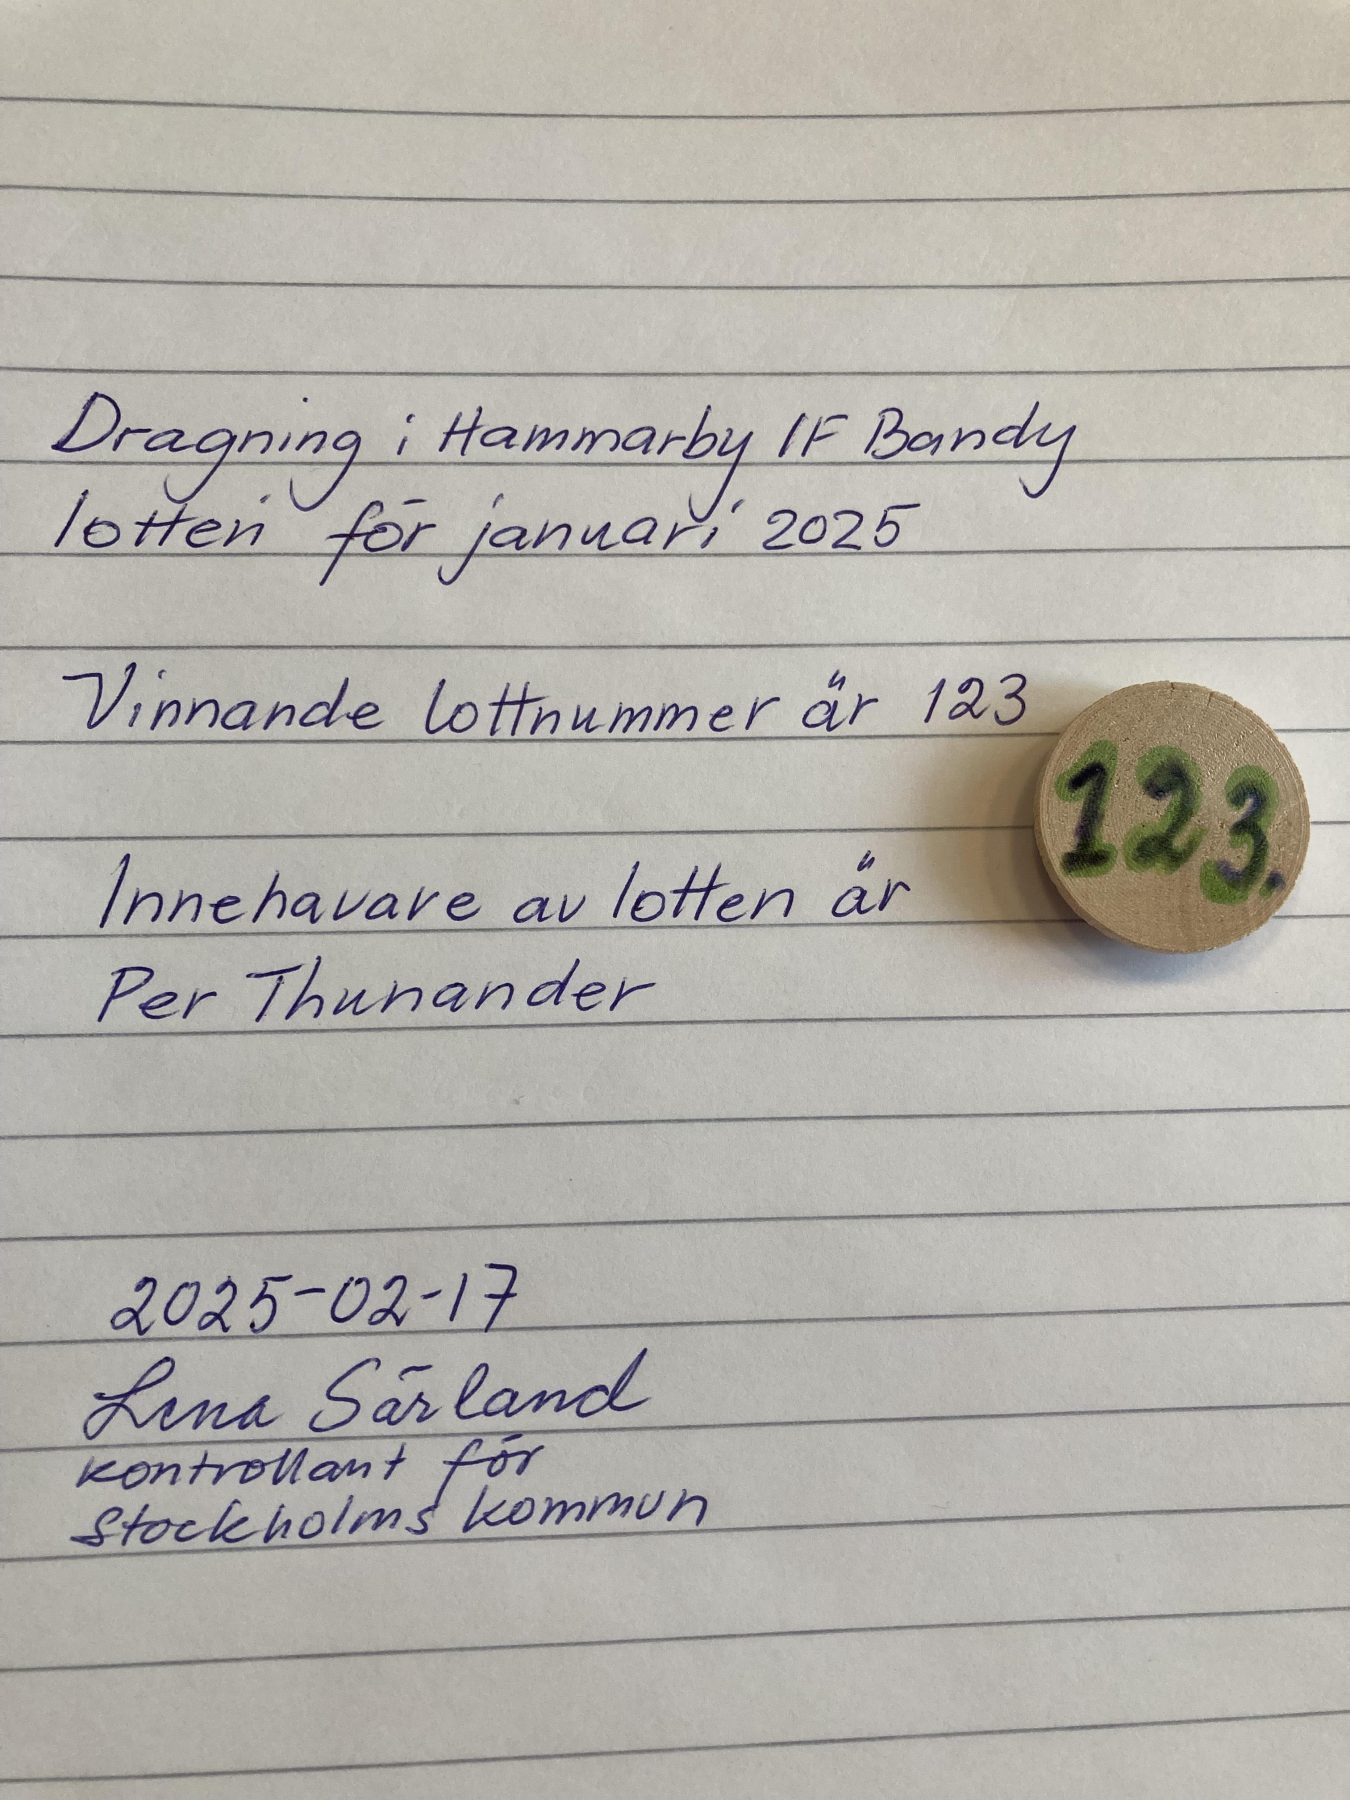 Dragning i Hammarby IF Bandy
lotteri för januari 2025
Vinnande lottnummer är 123
123.
Innehavare av lotten är
Per Thunander
2025-02-17
Lena Särland
kontrollant för
Stockholms kommun